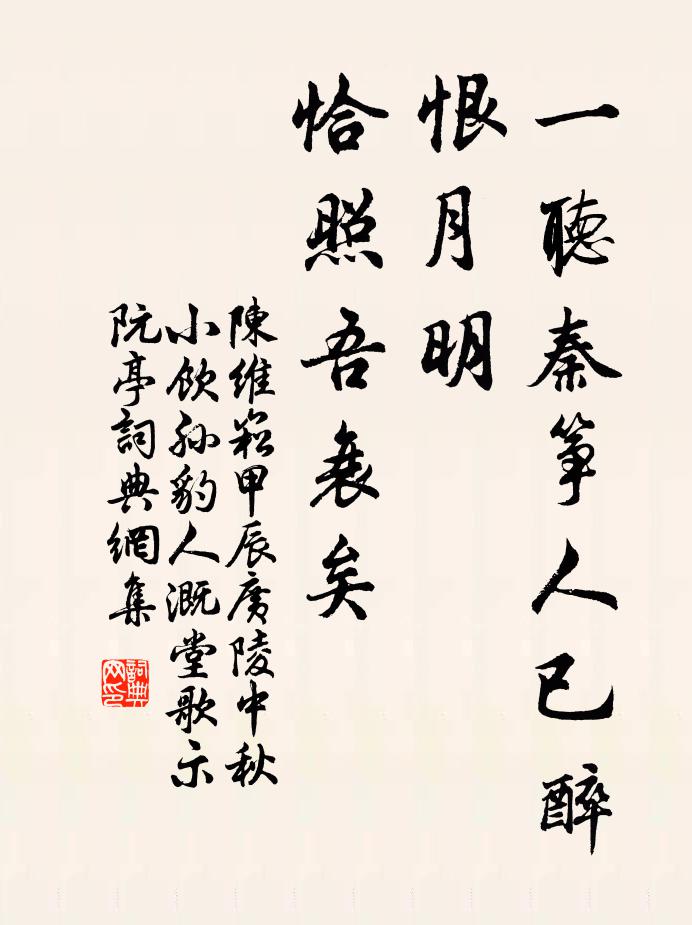 一聽秦箏人已醉
恨月明
恰照吾衰矣
陳維崧甲辰廣陵中秋
小飲孫豹人溉堂歌示
阮亭詞典網集
詞典
网印